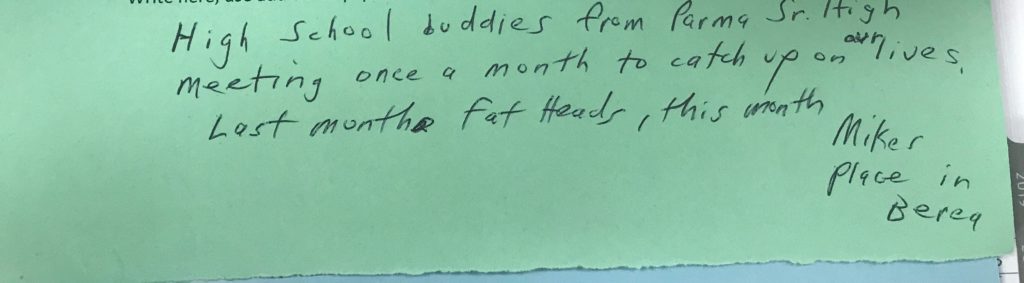 High School buddies from Parma Sr. High
meeting once a month to catch up on our lives.
Last month Fat Heads, this month
Mikes
place in
Berea